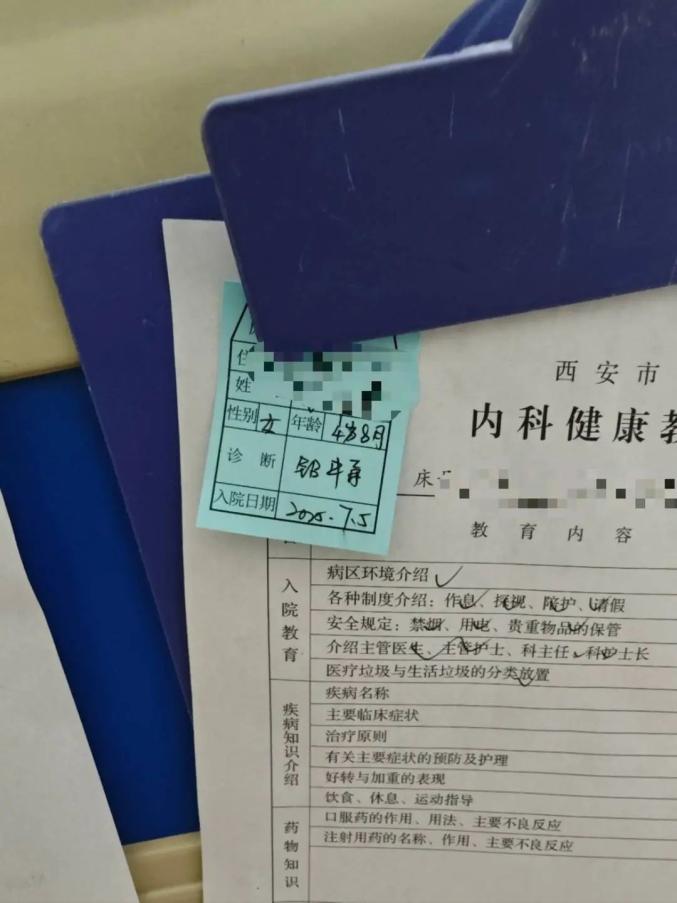 姓
性别 女 年龄 4岁8月
诊断
入院日期 2025.7.5
西安市
内科健康教
床
教育内容
入院教育
病区环境介绍
各种制度介绍：作息、探视、陪护、请假
安全规定：禁烟、用电、贵重物品的保管
介绍主管医生、主管护士、科主任、科护士长
医疗垃圾与生活垃圾的分类放置
疾病知识介绍
疾病名称
主要临床症状
治疗原则
有关主要症状的预防及护理
好转与加重的表现
饮食、休息、运动指导
药物知识
口服药的作用、用法、主要不良反应
注射用药的名称、作用、主要不良反应